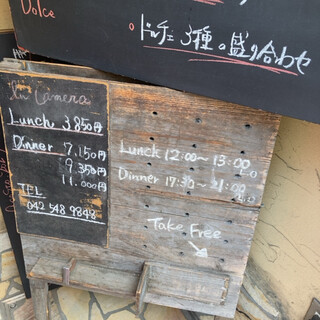 Dolce
○ ドルチェ 3種の盛り合わせ
In Camera
Lunch 3.850円
Dinner 7.150円
9.350円
11.000円
TEL
042 548 9848
Lunch 12:00~13:00
L.O
Dinner 17:30~21:00
L.O
Take Free